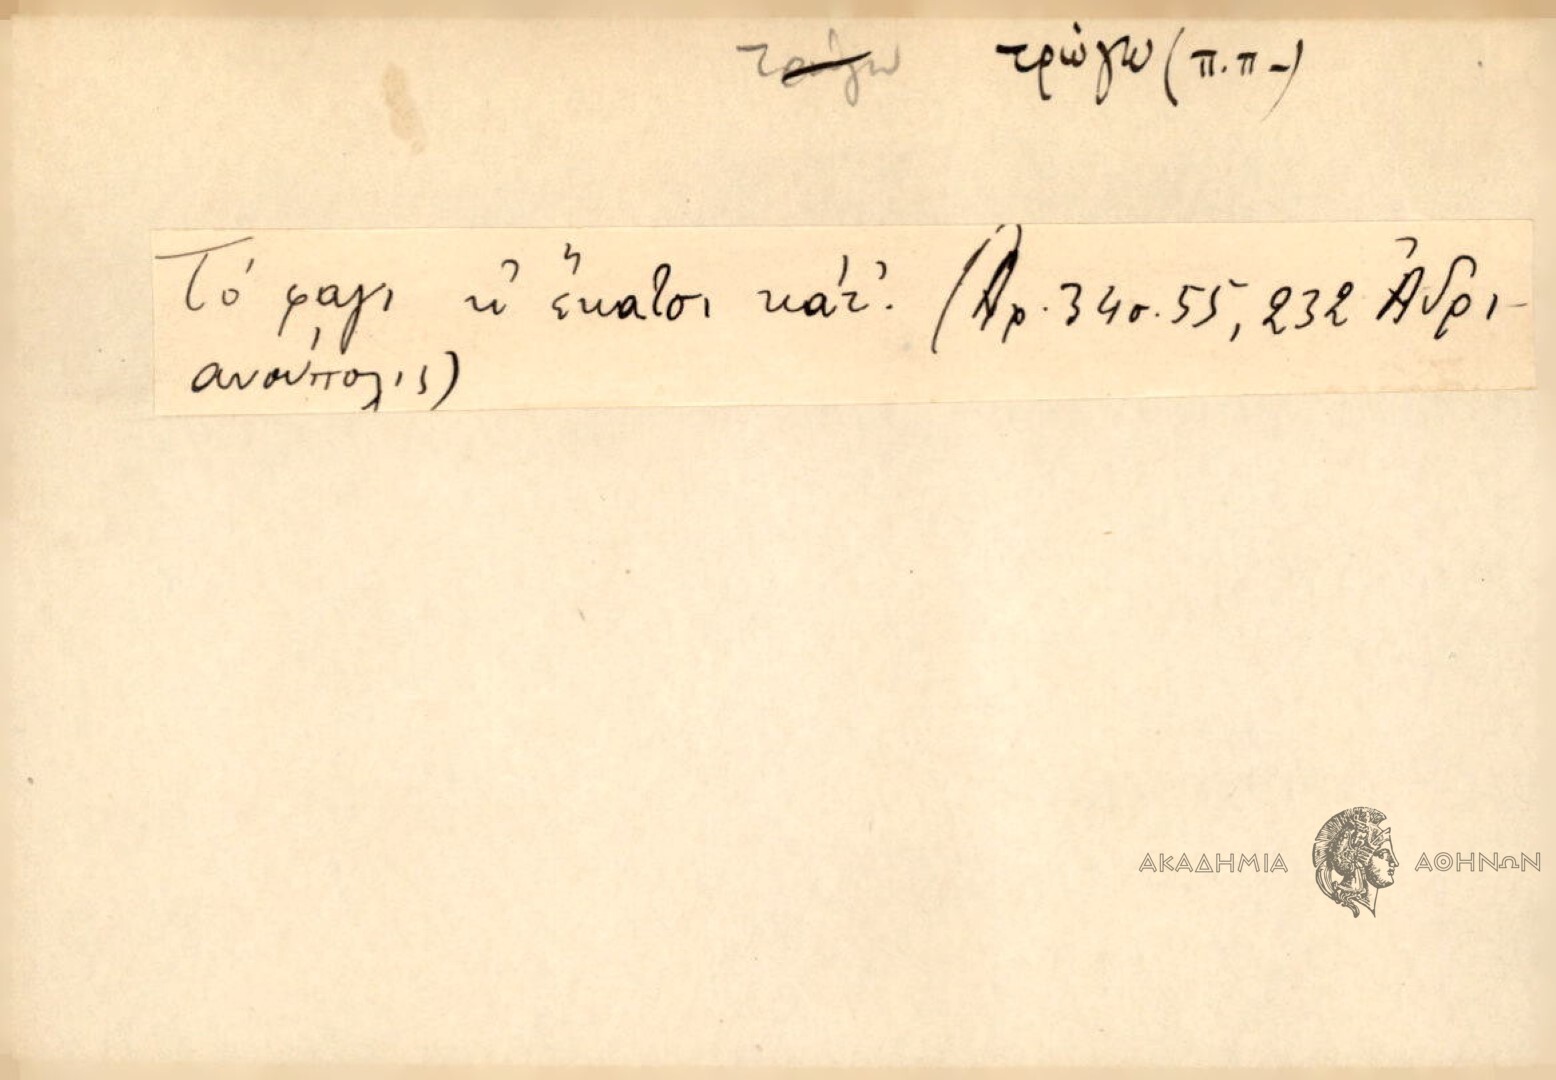 τρώγω τρώγω (π.π-)
Τό φαγι κ' ἔκατσι κάτ'. (Ἀρ. 34 σ. 55, 232 Ἀδρι-
ανούπολις)
ΑΚΑΔΗΜΙΑ ΑΘΗΝΩΝ